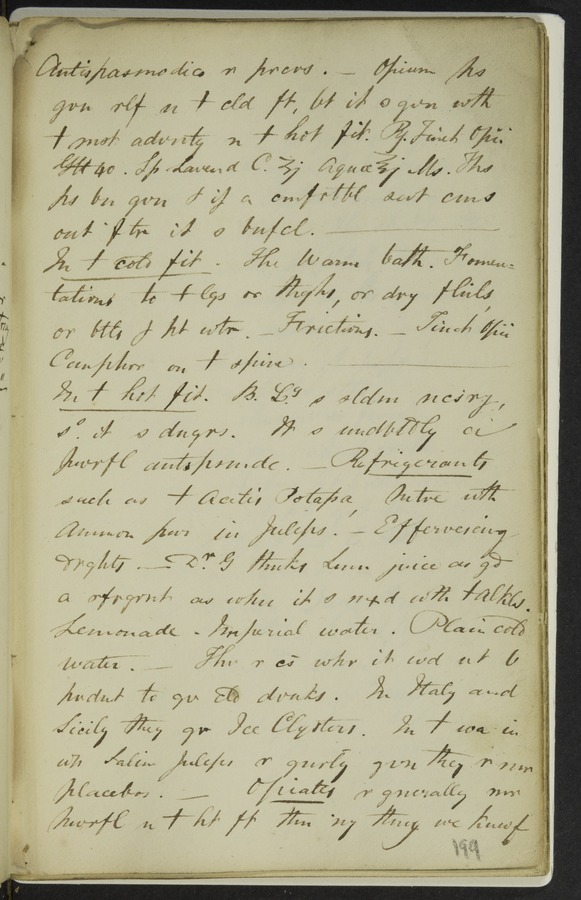 Antispasmodics r prevs. — Opium hs
gvn rlf n t cld ft, bt it s gvn wth
t mst advntg n t hot fit. Rx. Tinct Opii
Gtt 40. Sp Lavend C. ʒj Aquæ ℥j Ms. Ths
hs bn gvn & if a cmfrtbl swt cms
out ftr it s bnfcl. —
In t cold fit. The Warm bath. Fomen=
tations to t lgs or thighs, or dry
or btls of ht wtr. — Frictions. — Tinct Opii
Camphor on t spine. —
In t hot fit. B. Lg s sldm ncsry,
s. it s dngrs. It s undbtdly a
pwrfl antispsmdc. — Refrigerants
such as t Acetis Potassa, Nitre wth
Ammon pur in Juleps. — Effervescing
drghts. — Dr. G thinks Lemn juice as gd
a rfrgrnt as when it s mxd with t alkls.
Lemonade - Imperial water. Plain cold
water. — Thr r cs whr it wd nt b
prdnt to gv cld drnks. In Italy and
Sicily they gv Ice Clysters. In t wa in
wh Salin Juleps r gnrly gvn they r mr
placebos. — Opiates r gnerally mr
pwrfl n t ht ft thn ny thing we know of
199